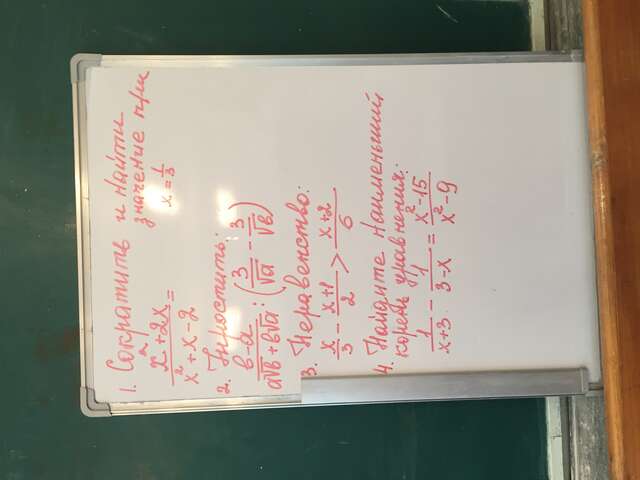 1. Сократить и найти
значение при
x² + 2x / x² + x - 2 = x = 1/3
2. Упростить:
b - a / a√b + b√a : (3/√a - 3/√b)
3. Неравенство:
x/3 - x+1/2 > x+2/6
4. Найдите наименьший
корень уравнения:
1/x+3 - 1/3-x = x²-15/x²-9